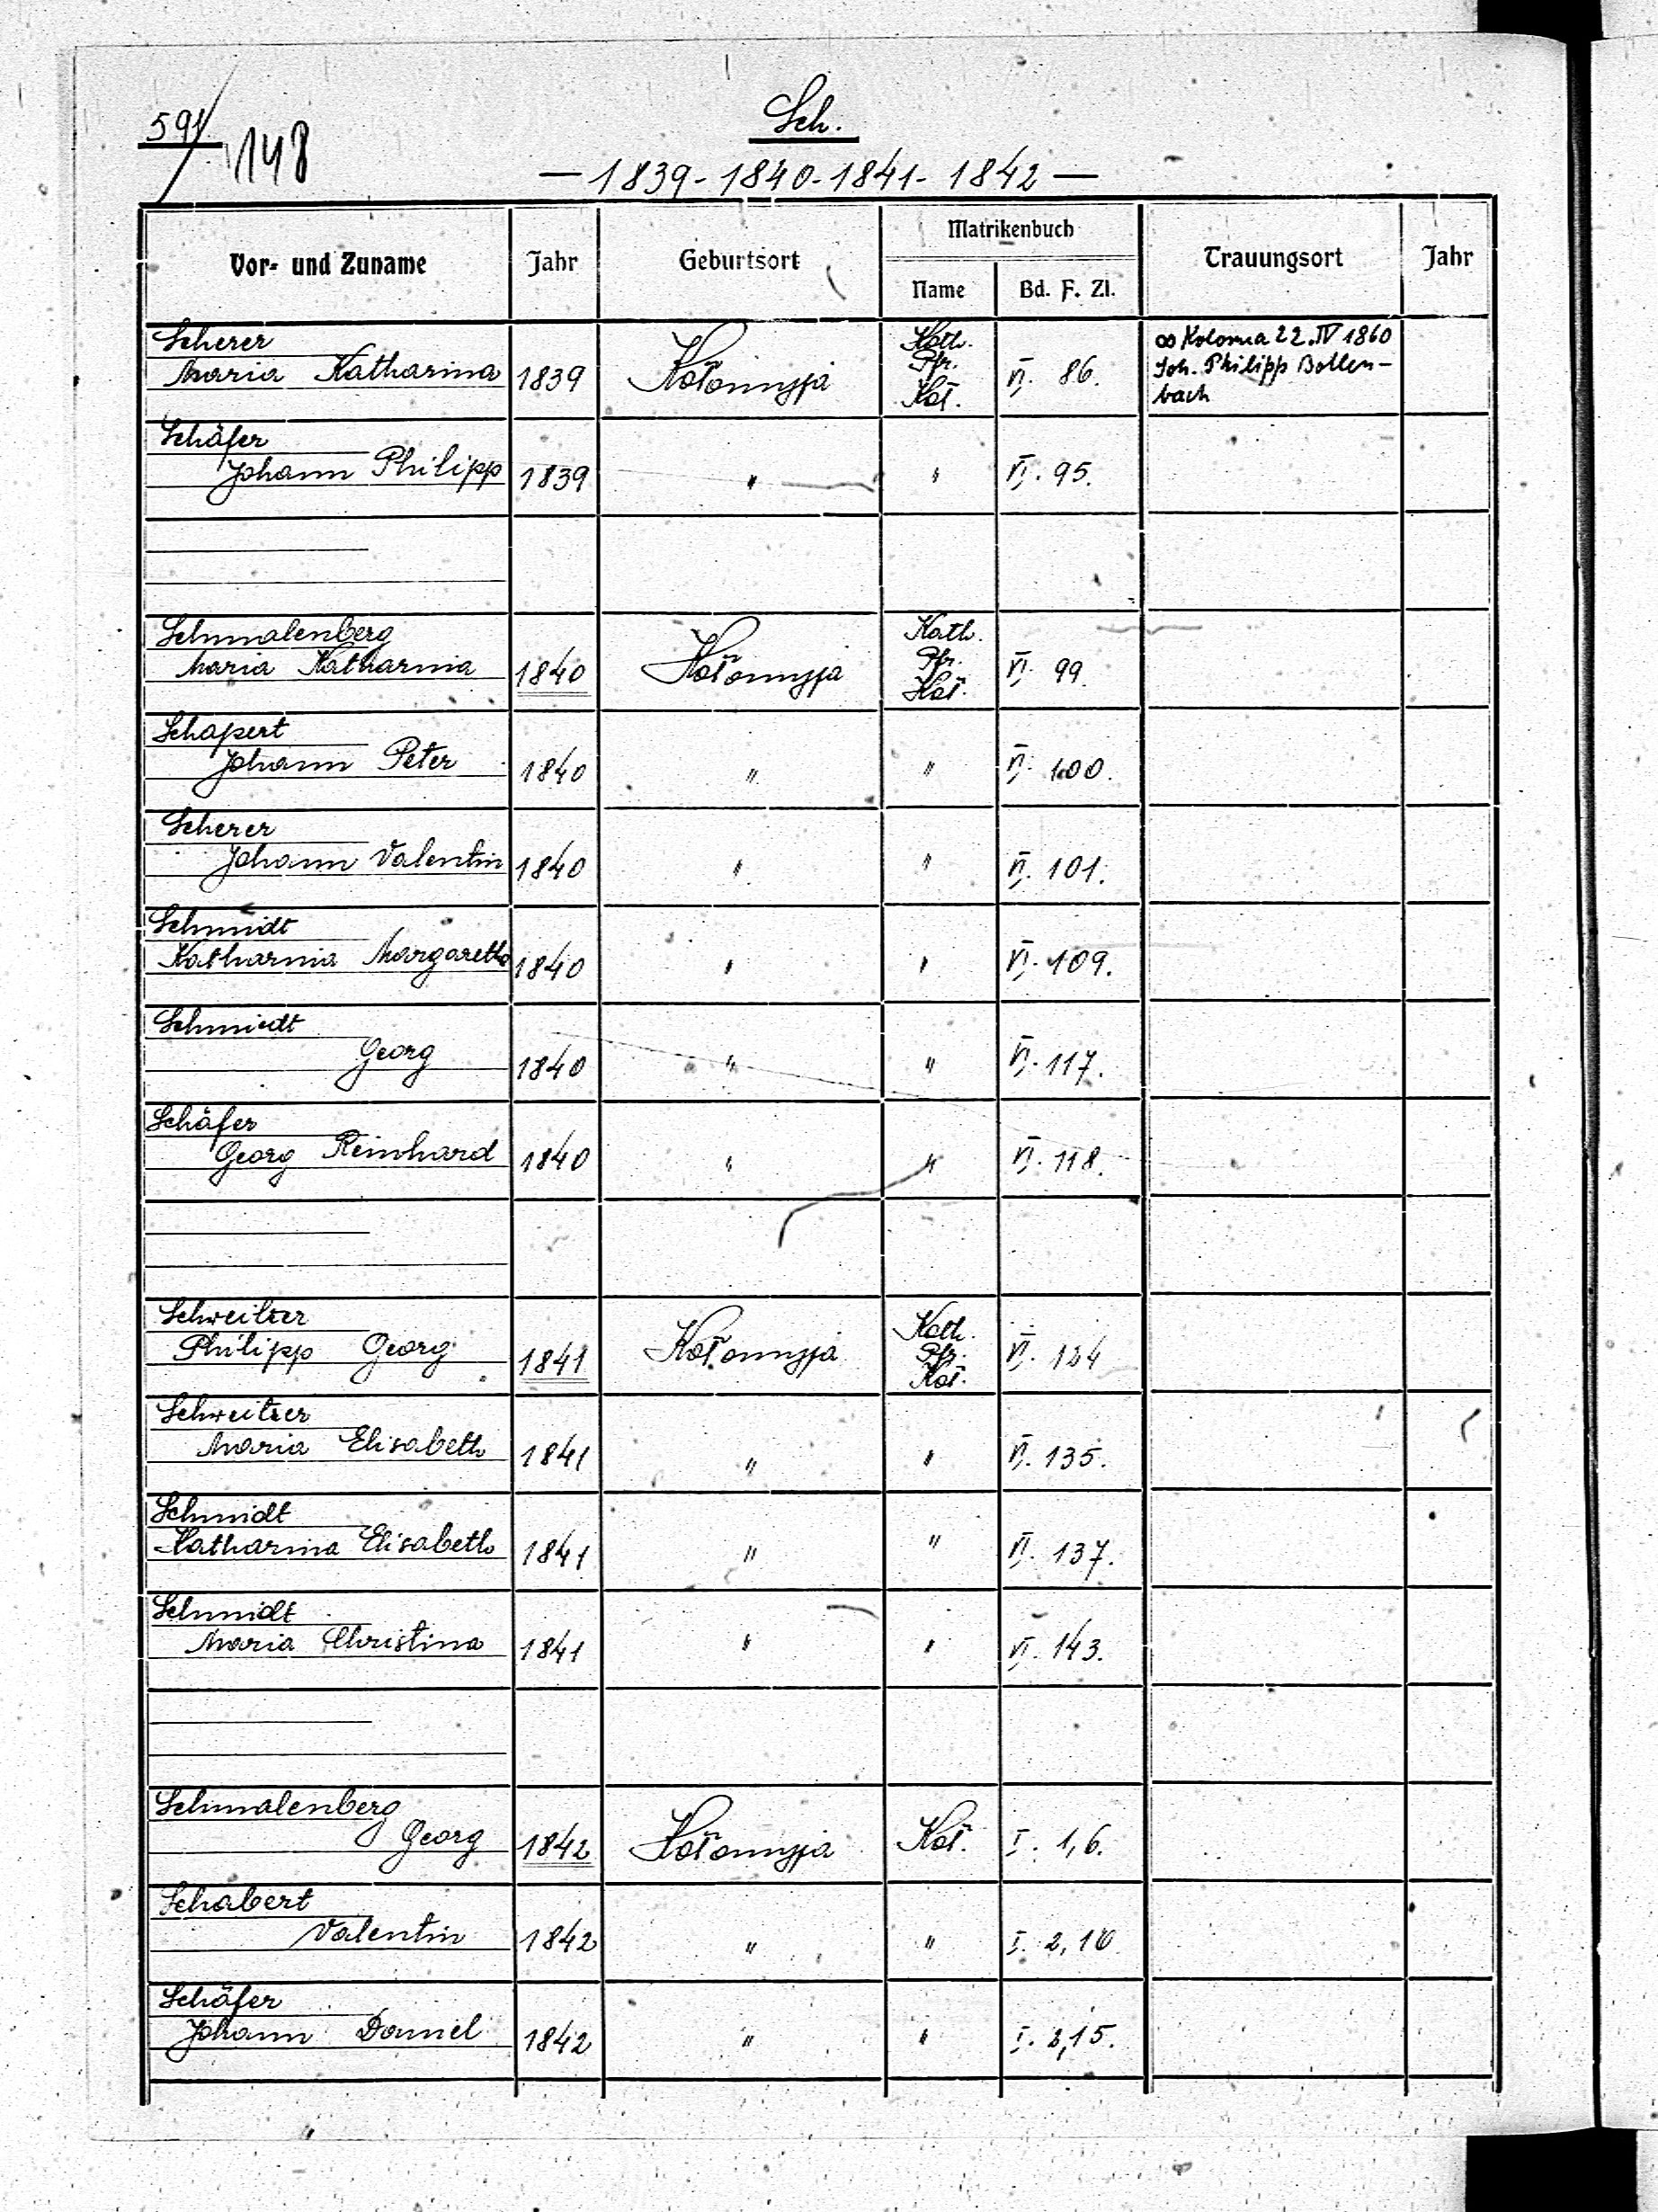 591
148
Sch.
— 1839-1840-1841-1842 —
Vor- und Zuname Jahr Geburtsort Matrikenbuch Trauungsort Jahr
Name Bd. F. Zl.
Scherer
Maria Katharina 1839 Kołomyja Kath. Pfr. Koł. VI. 86. ∞ Kolomea 22.IV 1860
Joh. Philipp Bollen-
bach
Schäfer
Johann Philipp 1839 " " VI. 95.
Schmalenberg
Maria Katharina 1840 Kołomyja Kath. Pfr. Koł. VI. 99
Schapert
Johann Peter 1840 " " VI. 100.
Scherer
Johann Valentin 1840 " " VI. 101.
Schmidt
Katharina Margaretha 1840 " " VI. 109.
Schmiedt
Georg 1840 " " VI. 117.
Schäfer
Georg Reinhard 1840 " " VI. 118.
Schweitzer
Philipp Georg 1841 Kołomyja Kath. Pfr. Koł. VI. 124
Schweitzer
Maria Elisabeth 1841 " " VI. 135.
Schmidt
Katharina Elisabeth 1841 " " VI. 137.
Schmidt
Maria Christina 1841 " " VI. 143.
Schmalenberg
Georg 1842 Kołomyja Koł. I. 1,6.
Schabert
Valentin 1842 " " I. 2,10
Schäfer
Johann Daniel 1842 " " I. 2,15.